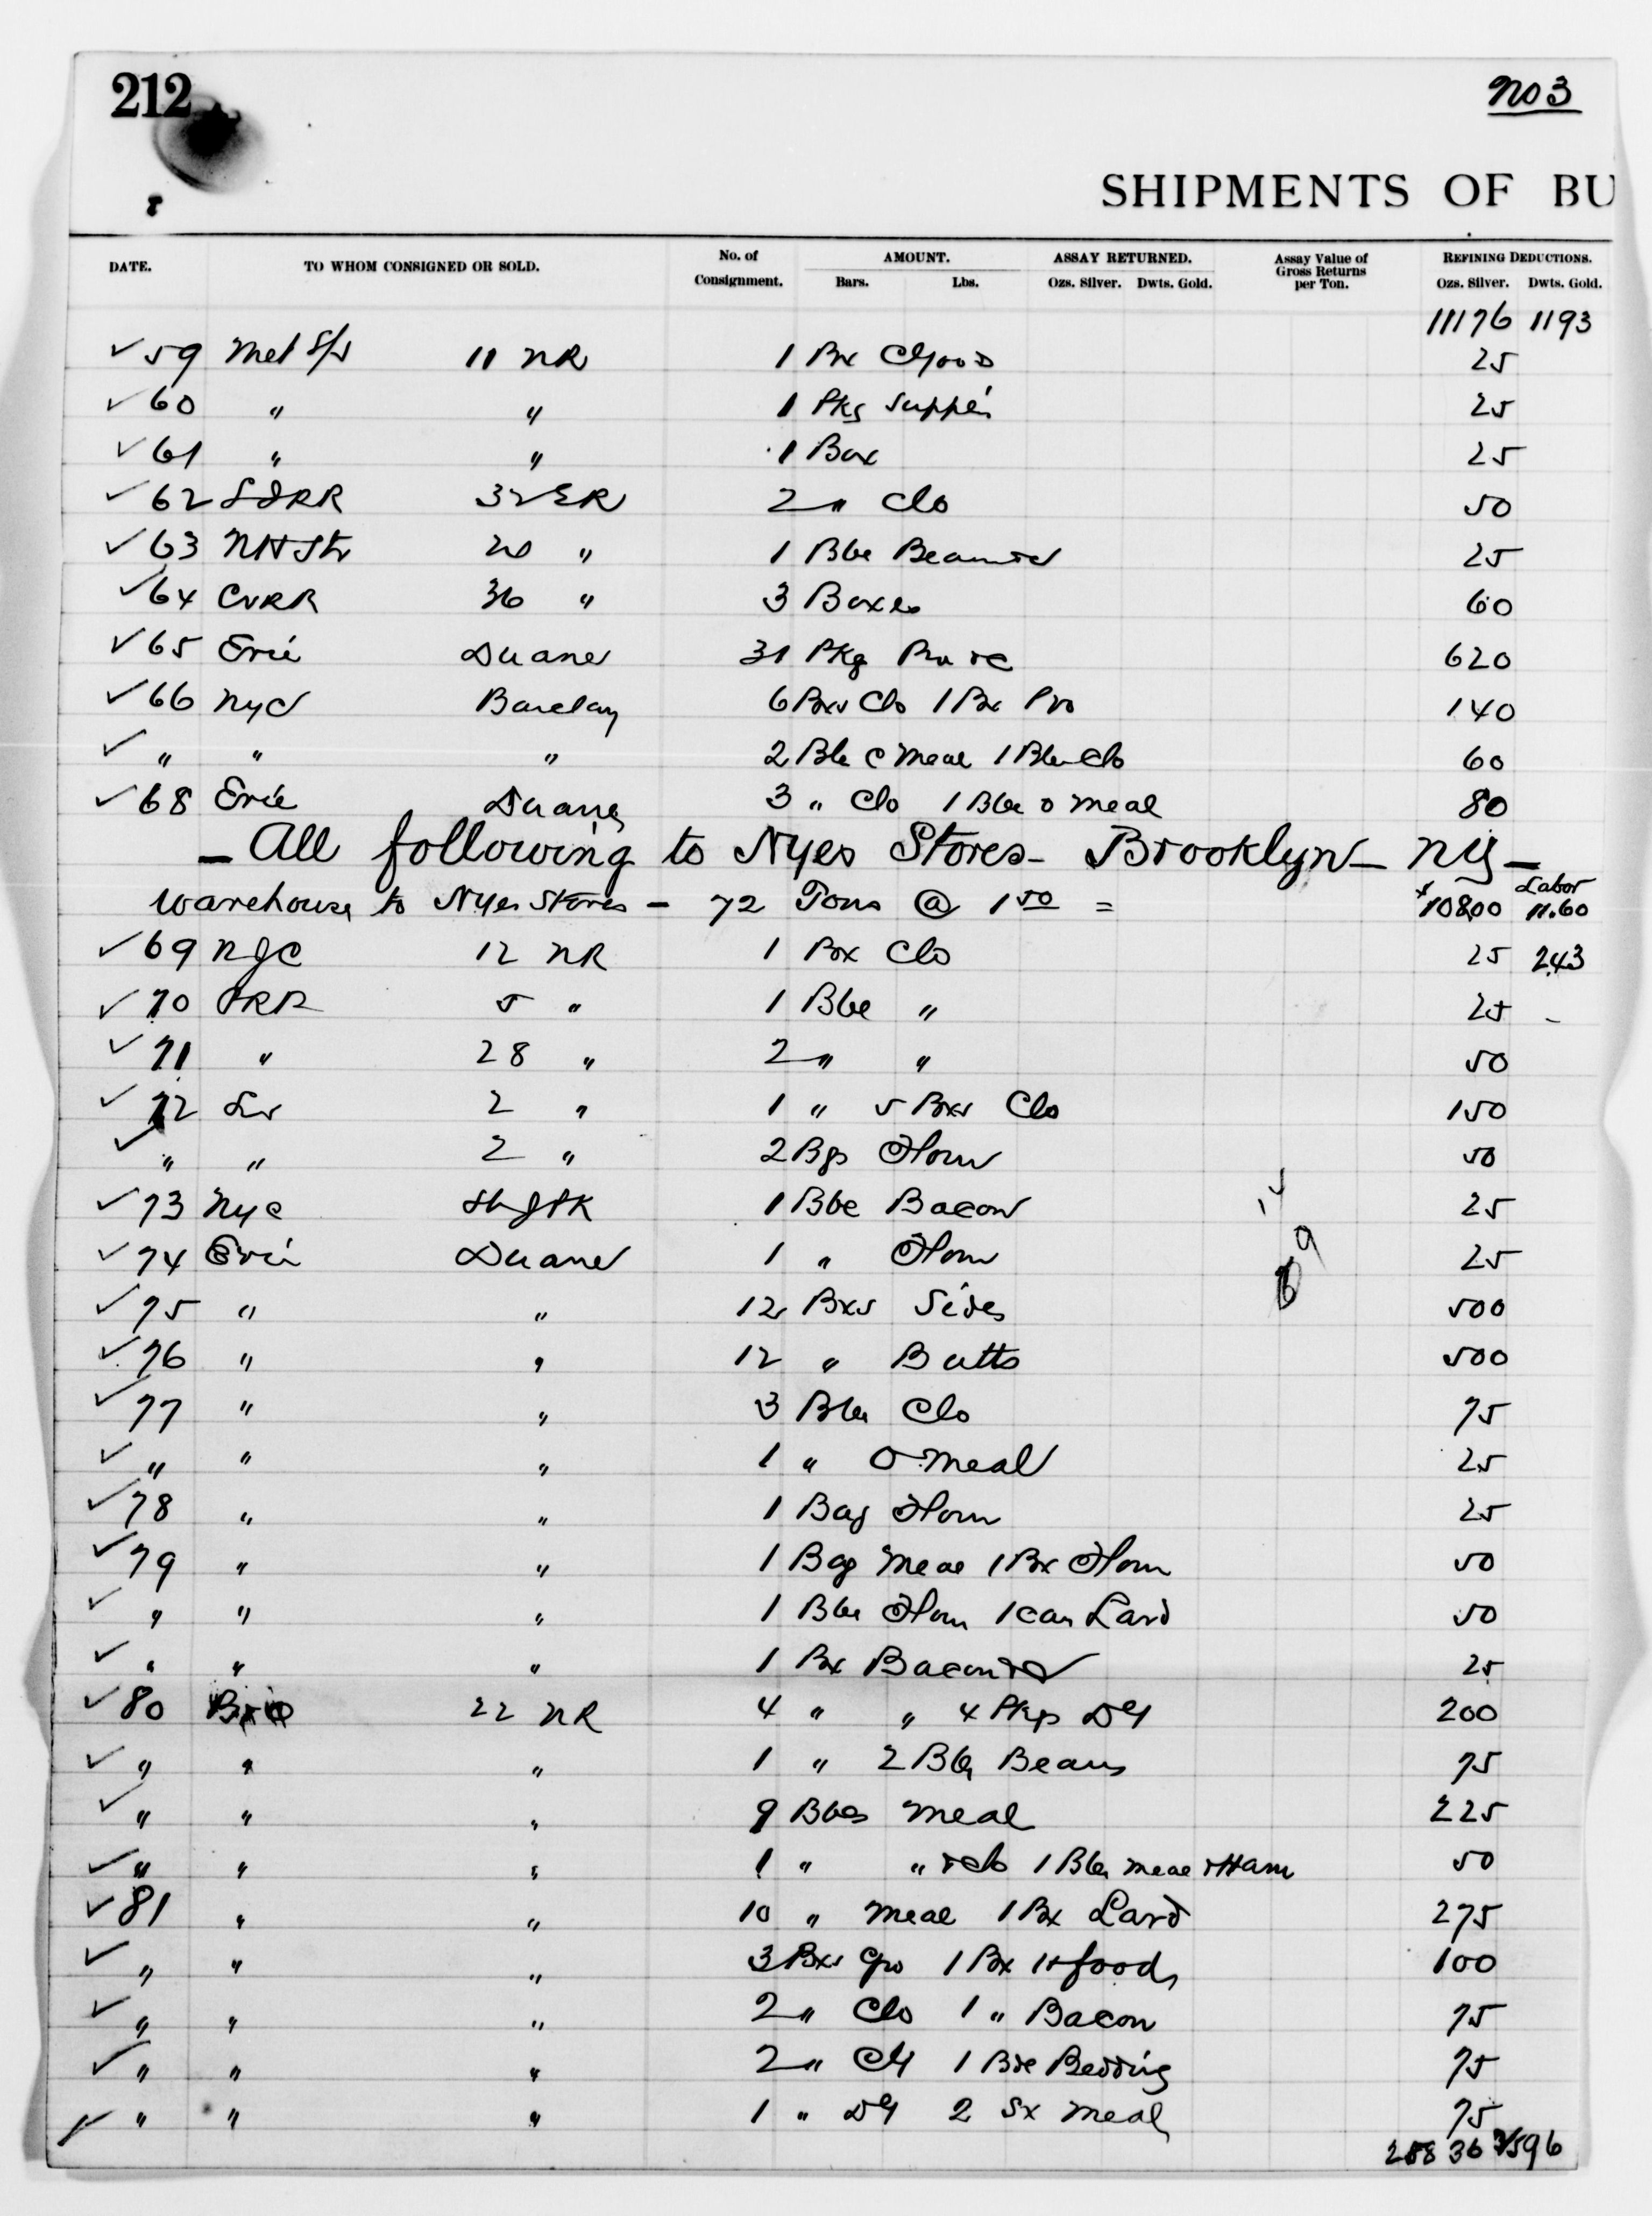 212
no 3
SHIPMENTS OF BU
DATE. TO WHOM CONSIGNED OR SOLD. No. of Consignment. AMOUNT. Bars. Lbs. ASSAY RETURNED. Ozs. Silver. Dwts. Gold. Assay Value of Gross Returns per Ton. REFINING DEDUCTIONS. Ozs. Silver. Dwts. Gold.
11176 1193
✓ 59 Met S/s 11 NR 1 Bx 25
✓ 60 " " 1 Pkg 25
✓ 61 " " 1 Box 25
✓ 62 32 ER 2 " Clo 50
✓ 63 20 " 1 Bbl 25
✓ 64 CVRR 36 " 3 Boxes 60
✓ 65 Erie Duane 31 Pkg 620
✓ 66 Nyc Barclay 6 Bxs Clo 1 Bx Pro 140
✓ " " " 2 Bbl C Meal 1 Bbl Clo 60
✓ 68 Erie Duane 3 " Clo 1 Bbl O Meal 80
- All following to Nyes Stores - Brooklyn - NY -
warehouse to Nyes Stores - 72 Tons @ 1 50 = $10800 Labor 11.60
✓ 69 12 NR 1 Box Clo 25 243
✓ 70 PRR 5 " 1 Bbl " 25 -
✓ 71 " 28 " 2 " " 50
✓ 72 2 " 1 " 5 Bxs Clo 150
✓ " " 2 " 2 Bgs Flour 50
✓ 73 Nyc 1 Bbl Bacon 25
✓ 74 Erie Duane 1 " Flour 25
✓ 75 " " 12 Bxs Sides 500
✓ 76 " " 12 " Butts 500
✓ 77 " " 3 Bbls Clo 75
✓ " " " 1 " O Meal 25
✓ 78 " " 1 Bag Flour 25
✓ 79 " " 1 Bag Meal 1 Bx Flour 50
✓ " " " 1 Bbl Flour 1 can Lard 50
✓ " " " 1 Bx Bacon 25
✓ 80 22 NR 4 " " 4 Pkgs DG 200
✓ " " " 1 " 2 Bbls Beans 75
✓ " " " 9 Bbls Meal 225
✓ " " " 1 " " & Clo 1 Bbl Meal & Ham 50
✓ 81 " " 10 " Meal 1 Bx Lard 275
✓ " " " 3 Bxs Gro 1 Bx 100
✓ " " " 2 " Clo 1 " Bacon 75
✓ " " " 2 " 1 Bdl Bedding 75
✓ " " " 1 " DG 2 Sx Meal 75
25836 2596